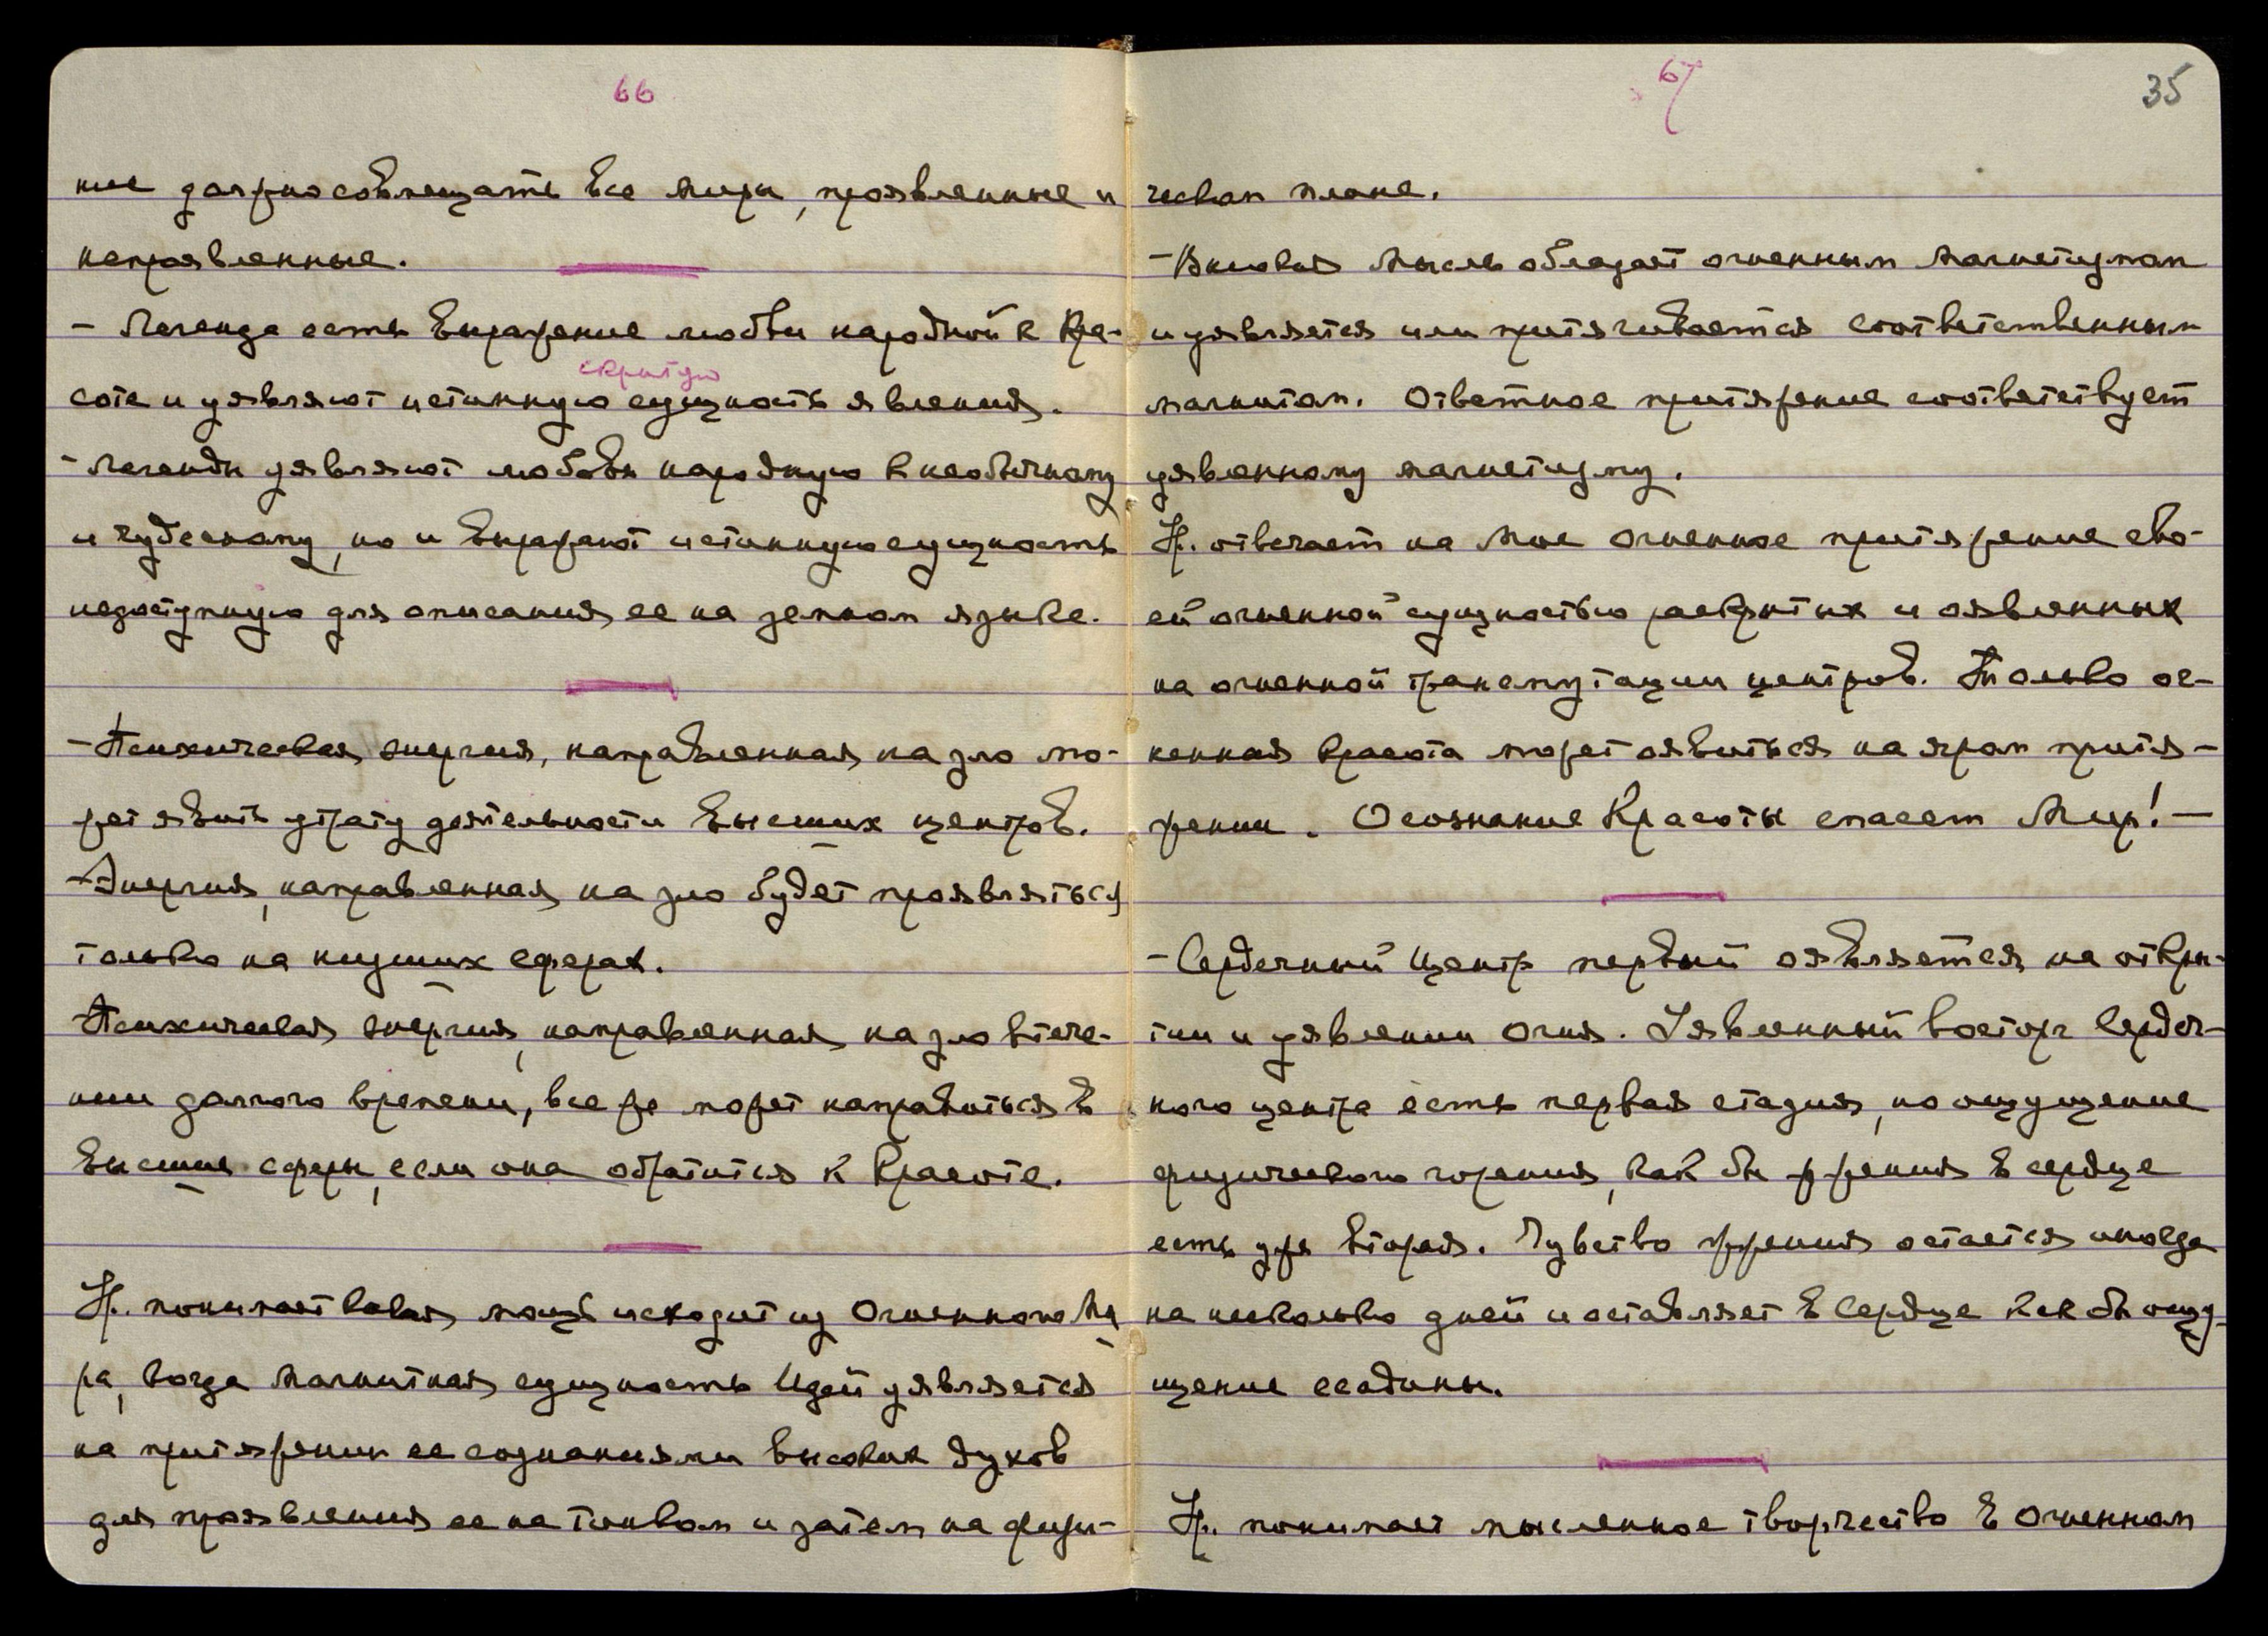 66
ние должно совмещать все миры, проявленные и
непроявленные.
- Легенда есть выражение любви народной к Кра-
скрытую
соте и уявляют истинную сущность явления.
- Легенды уявляют любовь народную к необычному
и чудесному, но и выражают истинную сущность
недоступную для описания ее на земном языке.
- Психическая энергия, направленная на зло мо-
жет явить утрату деятельности высших центров.
- Энергия, направленная на зло будет проявляться
только на низших сферах.
Психическая энергия, направленная на зло втече-
нии долгого времени, все же может направиться в
высшие сферы, если она обратится к Красоте.
Н. понимает какая мощь исходит из Огненного Ми
ра, когда магнитная сущность Идей уявляется
на притяжении ее сознаниями высоких духов
для проявления ее на тонком и затем на физи-
67
35
ческом плане.
- Высокая Мысль обладает огненным магнетизмом
и уявляется или притягивается соответственным
магнитом. Ответное притяжение соответствует
уявленному магнетизму.
Н. отвечает на Мое огненное притяжение сво-
ей огненной сущностью раскрытых и оявленных
на огненной трансмутации центров. Только ог-
ненная красота может оявиться на яром притя-
жении. Осознание Красоты спасет Мир! -
- Сердечный Центр первый оявляется на откры-
тии и уявлении Огня. Уявленный восторг Сердеч-
ного центра есть первая стадия, но ощущение
физического горения, как бы жжения в сердце
есть уже вторая. Чувство жжения остается иногда
на несколько дней и оставляет в Сердце как бы ощу-
щение ссадины.
Н. понимает мысленное творчество в Огненном